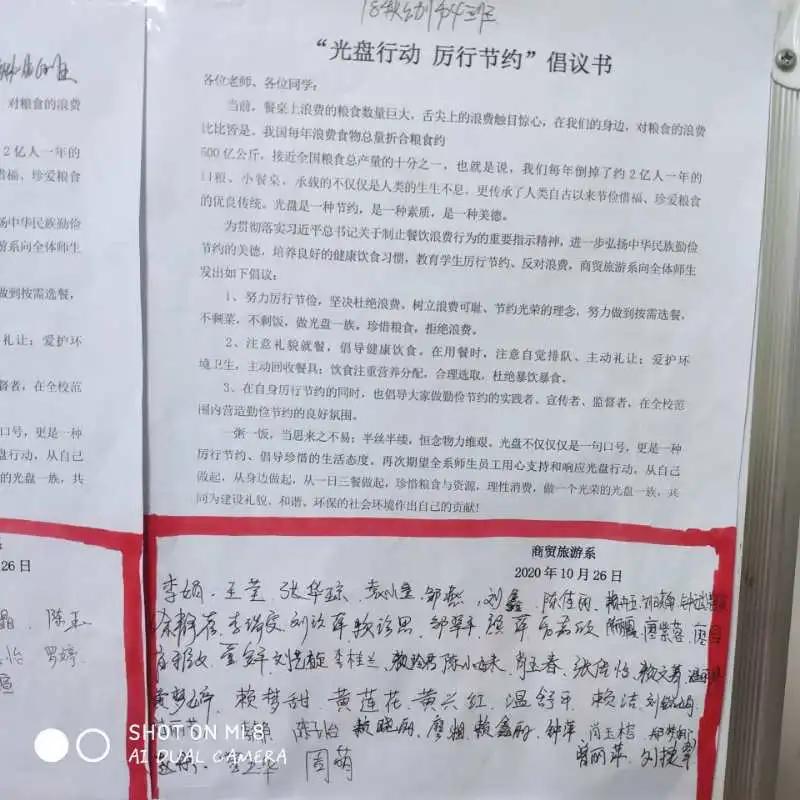 “光盘行动 厉行节约”倡议书
各位老师、各位同学：
当前，餐桌上浪费的粮食数量巨大，舌尖上的浪费触目惊心，在我们的身边，对粮食的浪费
比比皆是。我国每年浪费食物总量折合粮食约
500亿公斤，接近全国粮食总产量的十分之一，也就是说，我们每年倒掉了约2亿人一年的
口粮。小餐桌，承载的不仅仅是人类的生生不息，更传承了人类自古以来节俭惜福、珍爱粮食
的优良传统。光盘是一种节约，是一种素质，是一种美德。
为贯彻落实习近平总书记关于制止餐饮浪费行为的重要指示精神，进一步弘扬中华民族勤俭
节约的美德，培养良好的健康饮食习惯，教育学生厉行节约、反对浪费，商贸旅游系向全体师生
发出如下倡议：
1、努力厉行节俭，坚决杜绝浪费。树立浪费可耻、节约光荣的理念，努力做到按需选餐，
不剩菜，不剩饭，做光盘一族。珍惜粮食，拒绝浪费。
2、注意礼貌就餐，倡导健康饮食。在用餐时，注意自觉排队、主动礼让；爱护环
境卫生，主动回收餐具；饮食注重营养分配，合理选取，杜绝暴饮暴食。
3、在自身厉行节约的同时，也倡导大家做勤俭节约的实践者、宣传者、监督者，在全校范
围内营造勤俭节约的良好氛围。
一粥一饭，当思来之不易；半丝半缕，恒念物力维艰。光盘不仅仅仅是一句口号，更是一种
厉行节约、倡导珍惜的生活态度。再次期望全系师生员工用心支持和响应光盘行动，从自己
做起，从身边做起，从一日三餐做起，珍惜粮食与资源，理性消费，做一个光荣的光盘一族，共
同为建设礼貌、和谐、环保的社会环境作出自己的贡献！
商贸旅游系
2020年10月26日
李娟 王莹 张华琼 刘鑫 陈佳丽
李瑞雯 刘玲萍 邹翠平
李桂兰 陈小妹 肖玉春 张佳怡
黄梦婷 赖梦甜 黄莲花 黄兴红 温舒平 赖洁
赖晓丽 廖娟 赖鑫丽 钟萍 肖玉榕
曾丽萍 刘捷翠
周萌
对粮食的浪费
2亿人一年的
惜福、珍爱粮食
扬中华民族勤俭
游系向全体师生
做到按需选餐，
礼让；爱护环
督者，在全校范
口号，更是一种
盘行动，从自己
的光盘一族，共
26日
罗婷
SHOT ON MI 8
AI DUAL CAMERA